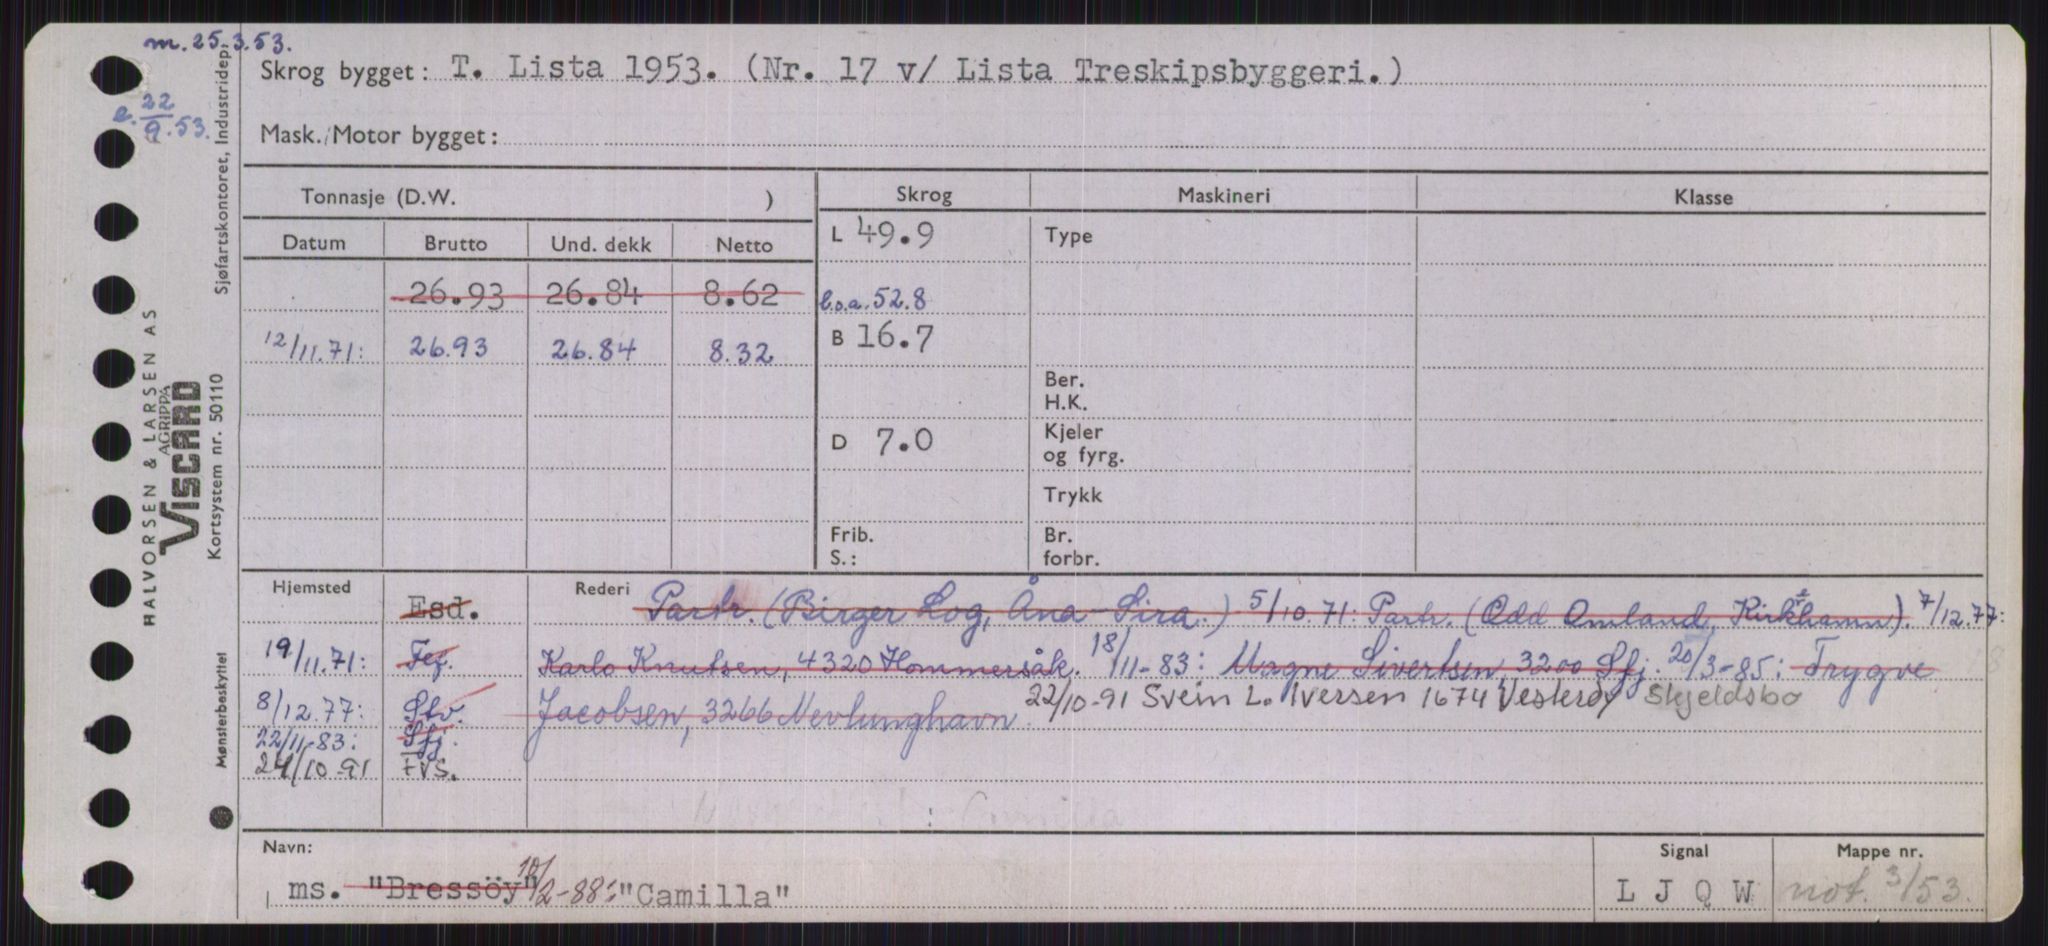 m. 25.3.53.
Skrog bygget: T. Lista 1953. (Nr. 17 v/ Lista Treskipsbyggeri.)
e. 22/9.53.
Mask./Motor bygget:
Tonnasje (D.W. )
Skrog
Maskineri
Klasse
Datum Brutto Und. dekk Netto
L 49.9
Type
26.93 26.84 8.62
l.o.a. 52.8
12/11.71: 26.93 26.84 8.32
B 16.7
Ber.
H.K.
D 7.0
Kjeler
og fyrg.
Trykk
Frib.
S.:
Br.
forbr.
Hjemsted
Esd.
Rederi Partr. (Birger Log, Åna-Sira.) 5/10.71: Partr. (Odd Omland, Kirkehamn). 7/12.77:
19/11.71: Fej. Karlo Knutsen, 4320 Hommersåk. 18/11-83: Magne Sivertsen, 3200 Sfj. 20/3-85: Trygve
8/12.77: Stv. Jacobsen, 3266 Nevlunghavn. 22/10-91 Svein L. Iversen 1674 Vesterøy Skjeldsbo
22/11-83: Sfj.
24/10-91 FVS.
: Camilla
Navn:
ms. "Bressöy" 10/2-88: "Camilla"
Signal
L J Q W
Mappe nr.
not. 3/53.
HALVORSEN & LARSEN AS
AGRIPPA
VISCARD
Kortsystem nr. 50110
Sjøfartskontoret, Industridep.
Mønsterbeskyttet